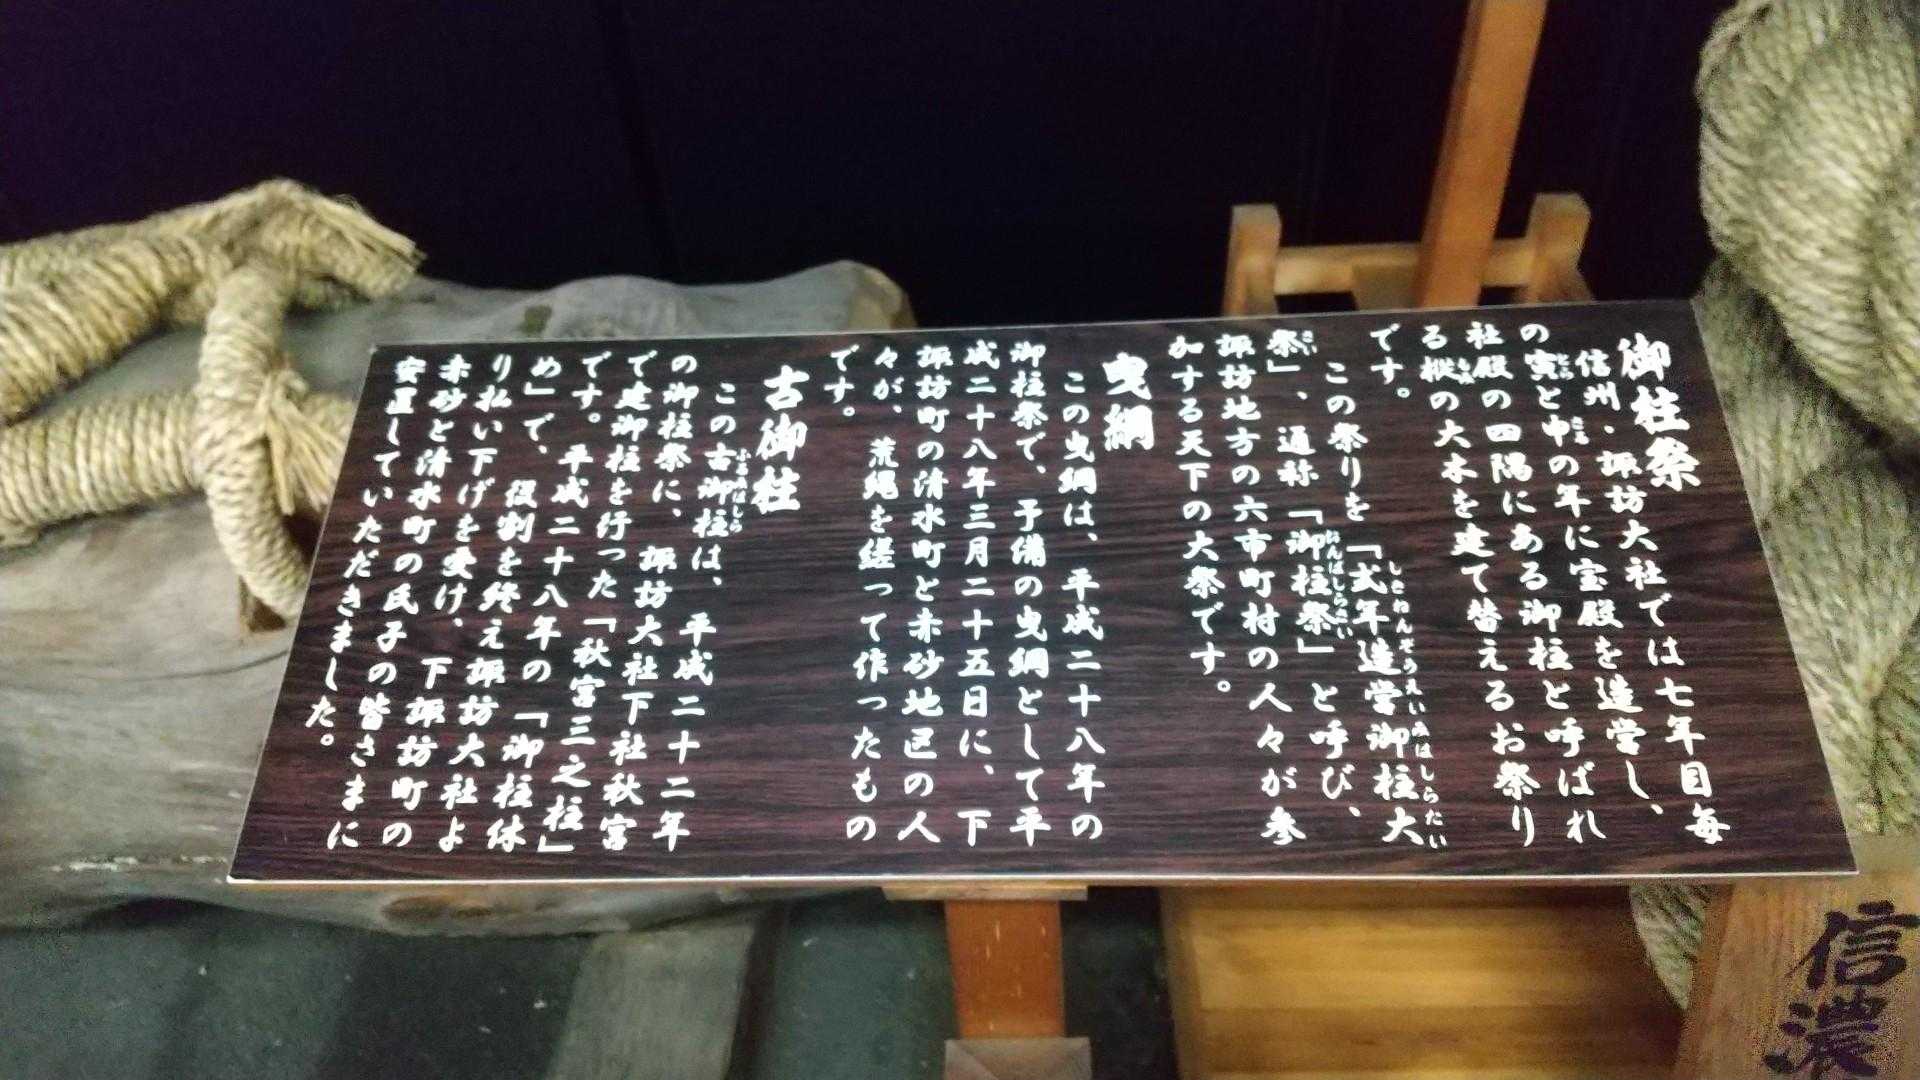 御柱祭
信州・諏訪大社では七年目毎
の寅と申の年に宝殿を造営し、
社殿の四隅にある御柱と呼ばれ
る樅の大木を建て替えるお祭り
です。
この祭りを「式年造営御柱大
祭」、通称「御柱祭」と呼び、
諏訪地方の六市町村の人々が参
加する天下の大祭です。
曳綱
この曳綱は、平成二十八年の
御柱祭で、予備の曳綱として平
成二十八年三月二十五日に、下
諏訪町の清水町と赤砂地区の人
々が、荒縄を縒って作ったもの
です。
古御柱
この古御柱は、平成二十二年
の御柱祭に、諏訪大社下社秋宮
で建御柱を行った「秋宮三之柱」
です。平成二十八年の「御柱休
め」で、役割を終え諏訪大社よ
り払い下げを受け、下諏訪町の
赤砂と清水町の氏子の皆さまに
安置していただきました。
信濃